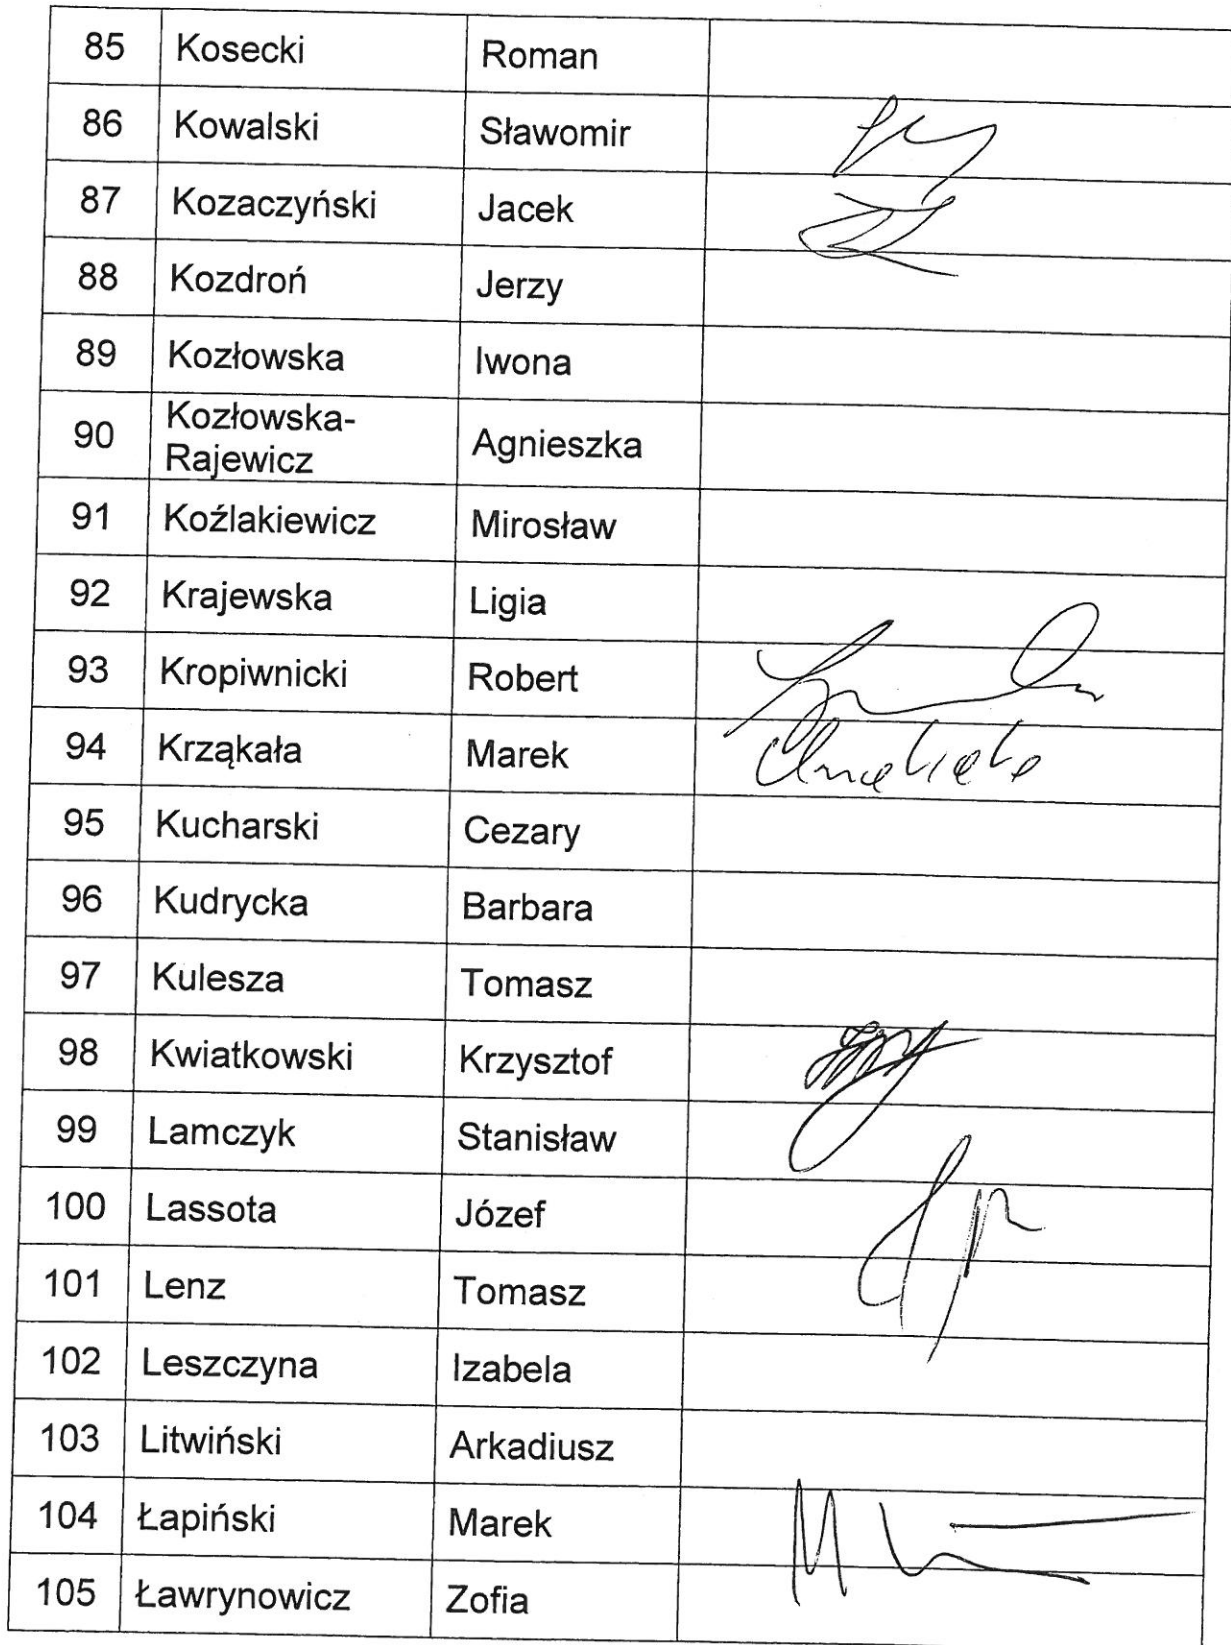 85 Kosecki Roman
86 Kowalski Sławomir
87 Kozaczyński Jacek
88 Kozdroń Jerzy
89 Kozłowska Iwona
90 Kozłowska-
Rajewicz Agnieszka
91 Koźlakiewicz Mirosław
92 Krajewska Ligia
93 Kropiwnicki Robert
94 Krząkała Marek
95 Kucharski Cezary
96 Kudrycka Barbara
97 Kulesza Tomasz
98 Kwiatkowski Krzysztof
99 Lamczyk Stanisław
100 Lassota Józef
101 Lenz Tomasz
102 Leszczyna Izabela
103 Litwiński Arkadiusz
104 Łapiński Marek
105 Ławrynowicz Zofia